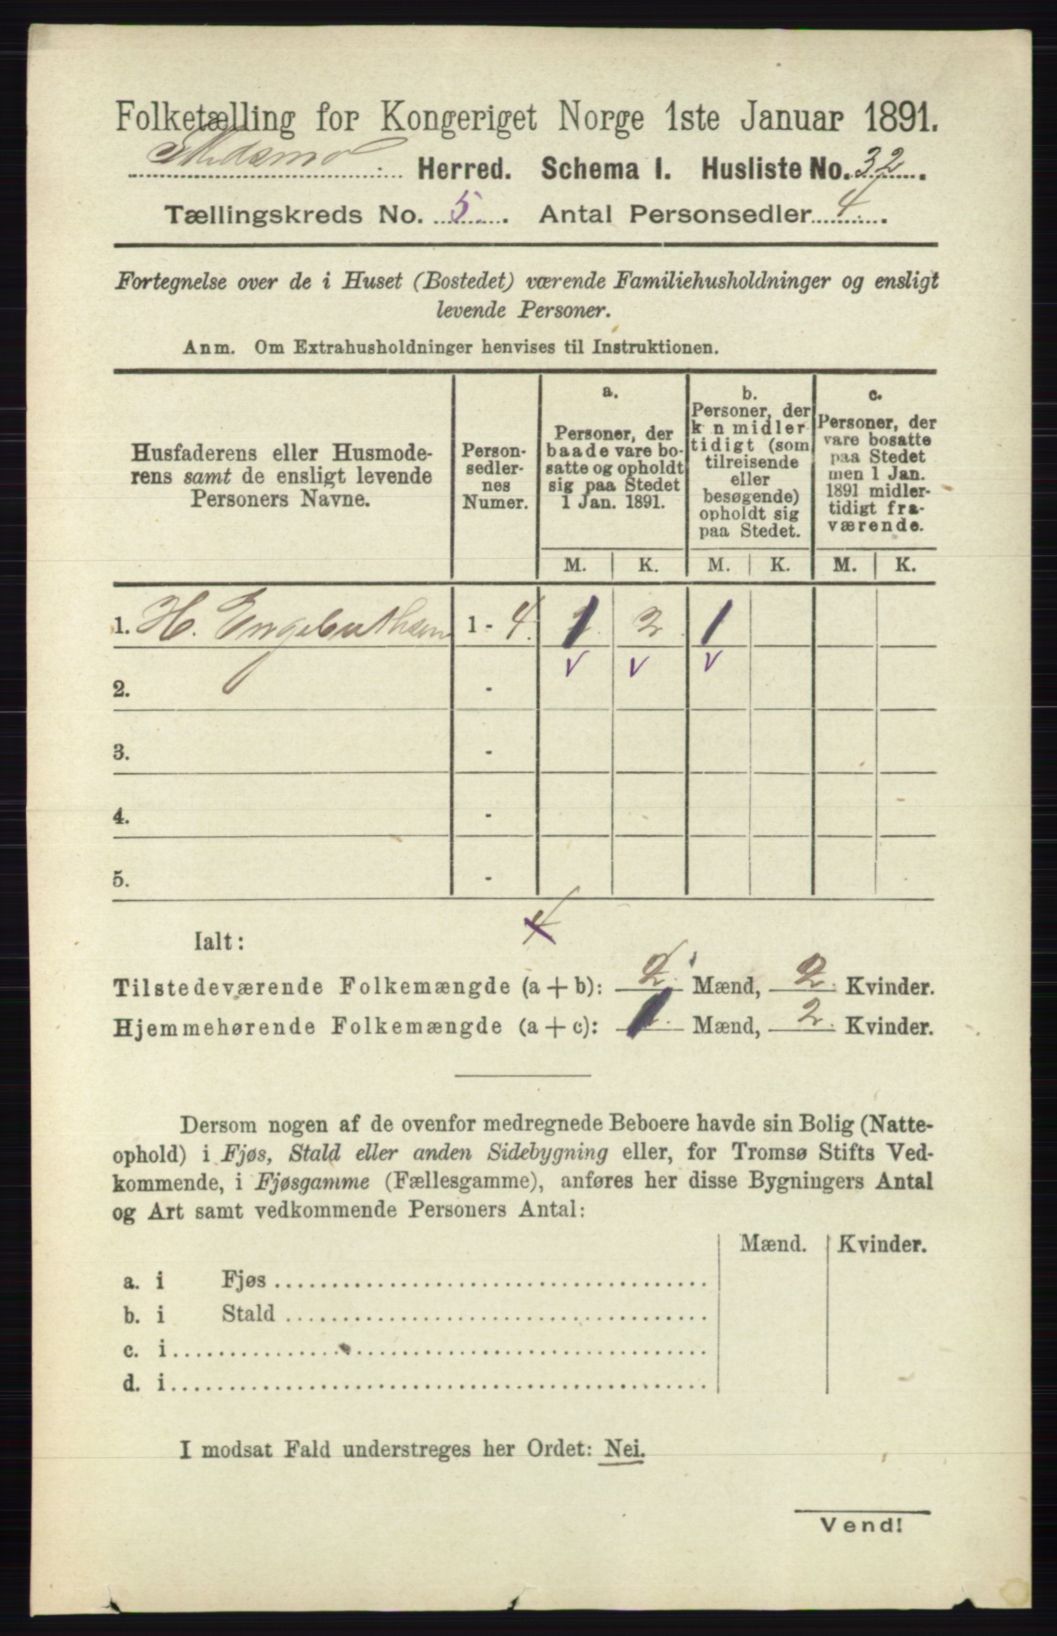 Folketælling for Kongeriget Norge 1ste Januar 1891.
Skedsmo Herred. Schema I. Husliste No. 32.
Tællingskreds No. 5. Antal Personsedler 4.
Fortegnelse over de i Huset (Bostedet) værende Familiehusholdninger og ensligt
levende Personer.
Anm. Om Extrahusholdninger henvises til Instruktionen.
Husfaderens eller Husmode-
rens samt de ensligt levende
Personers Navne.
Person-
sedler-
nes
Numer.
a.
Personer, der
baade vare bo-
satte og opholdt
sig paa Stedet
1 Jan. 1891.
b.
Personer, der
k n midler
tidigt (som
tilreisende
eller
besøgende)
opholdt sig
paa Stedet.
c.
Personer, der
vare bosatte
paa Stedet
men 1 Jan.
1891 midler-
tidigt fra-
værende.
M. K. M. K. M. K.
1. H. Engebrethsen 1 - 4. 1 2 1
v v v
2. -
3. -
4. -
5. -
4
Ialt:
Tilstedeværende Folkemængde (a + b): 2 Mænd, 2 Kvinder.
Hjemmehørende Folkemængde (a + c): 1 Mænd, 2 Kvinder.
Dersom nogen af de ovenfor medregnede Beboere havde sin Bolig (Natte-
ophold) i Fjøs, Stald eller anden Sidebygning eller, for Tromsø Stifts Ved-
kommende, i Fjøsgamme (Fællesgamme), anføres her disse Bygningers Antal
og Art samt vedkommende Personers Antal:
Mænd. Kvinder.
a. i Fjøs
b. i Stald
c. i
d. i
I modsat Fald understreges her Ordet: Nei.
Vend!